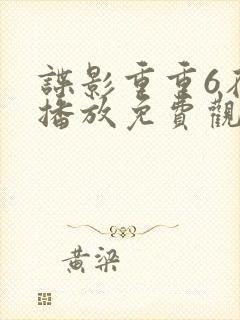 諜影重重6在
播放免費觀
黃梁